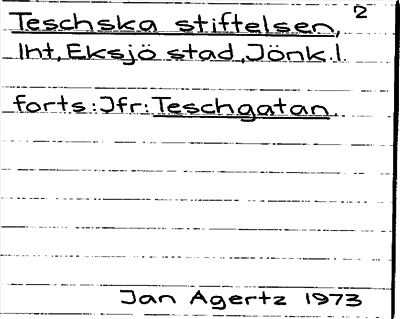 2
Teschska stiftelsen,
Iht, Eksjö stad, Jönk.l.
forts: Jfr: Teschgatan.
Jan Agertz 1973